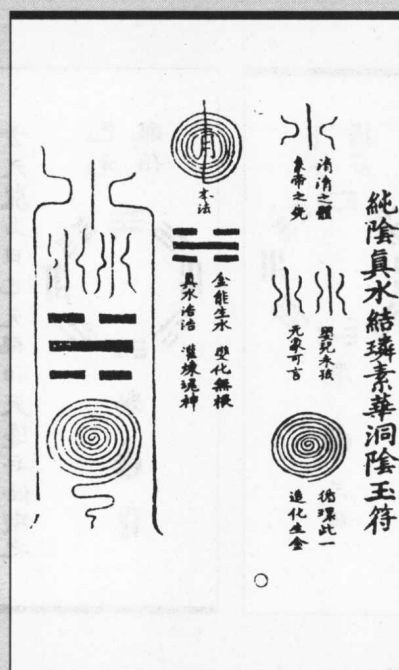 純陰眞水結璘素華洞陰玉符
涓涓之體
象帝之先
嬰兒未孩
无象可言
循環此一
造化生金
月
本法
金能生水 變化無根
眞水浩浩 神